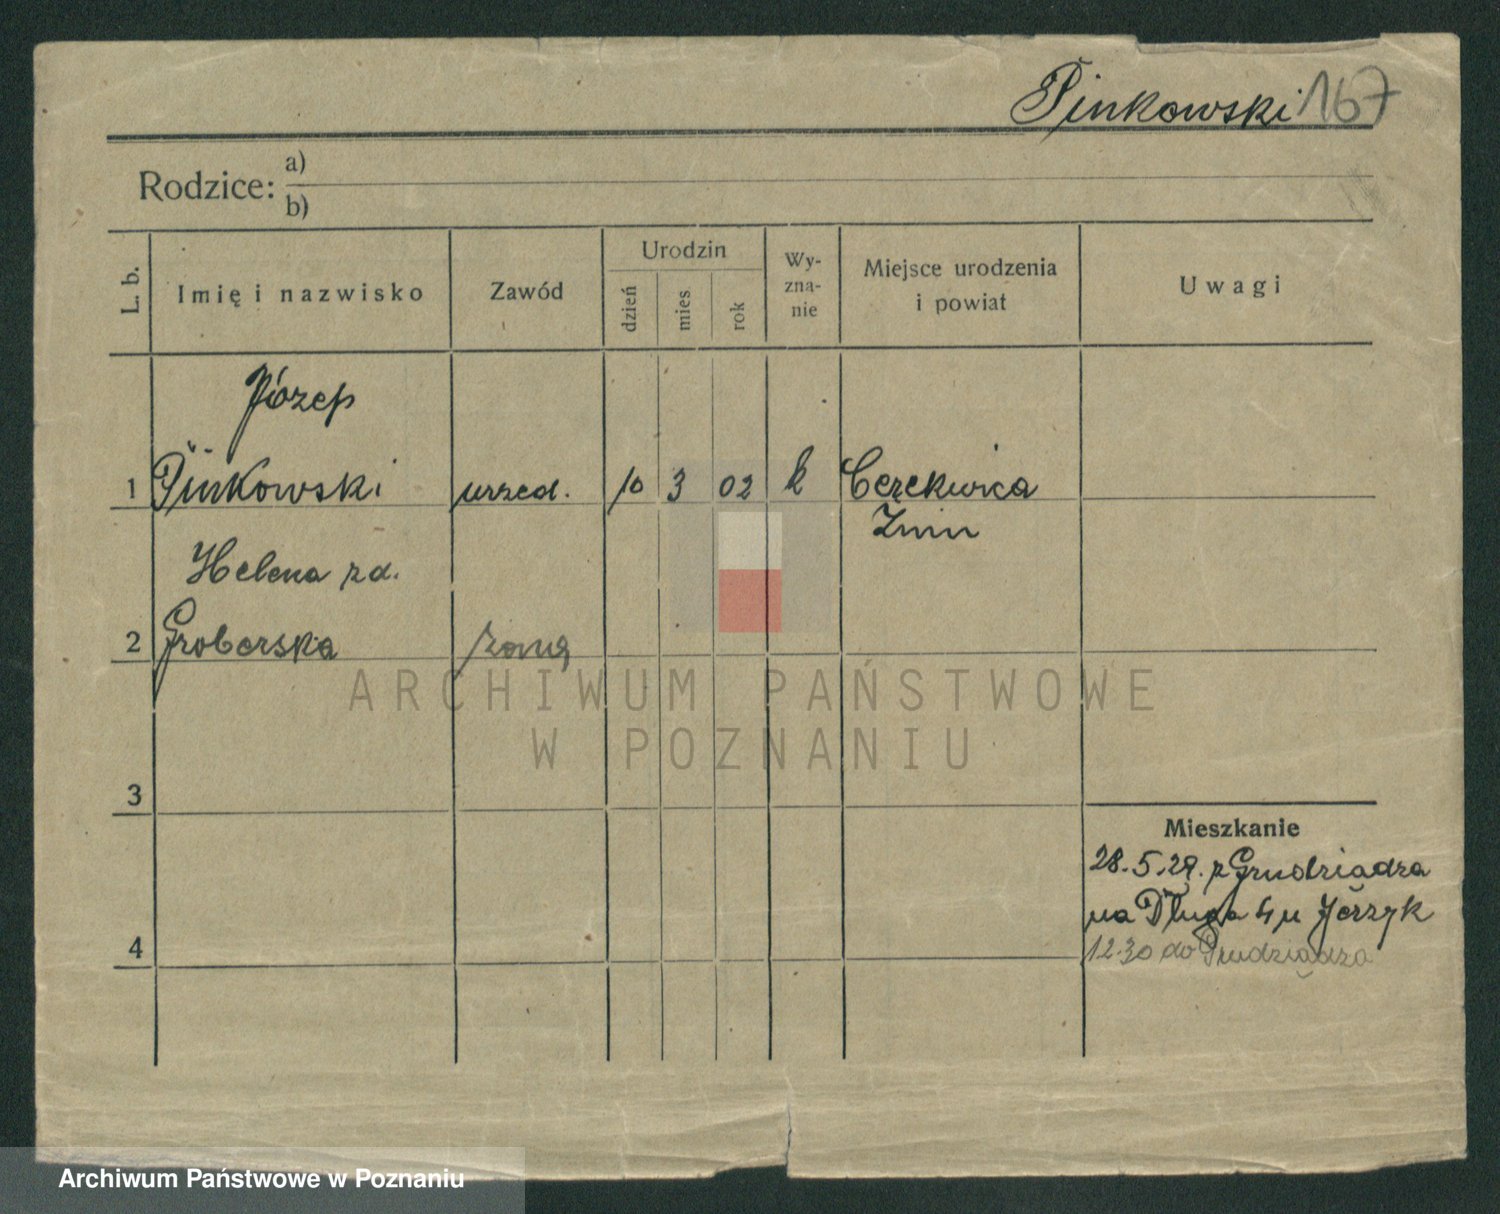 Pinkowski 167
Rodzice: a)
b)
L. b.
Imię i nazwisko
Zawód
Urodzin
dzień
mies.
rok
Wy-
zna-
nie
Miejsce urodzenia
i powiat
Uwagi
Józef
1 Pinkowski urzed. 10 3 02 k Cerekwica
Żnin
Helena zd.
2 Groberska żona
ARCHIWUM PAŃSTWOWE
W POZNANIU
3
Mieszkanie
28.5.29. z Grudziądza
na Długa 4 u Jerzyk
4 12.30 do Grudziądza
Archiwum Państwowe w Poznaniu